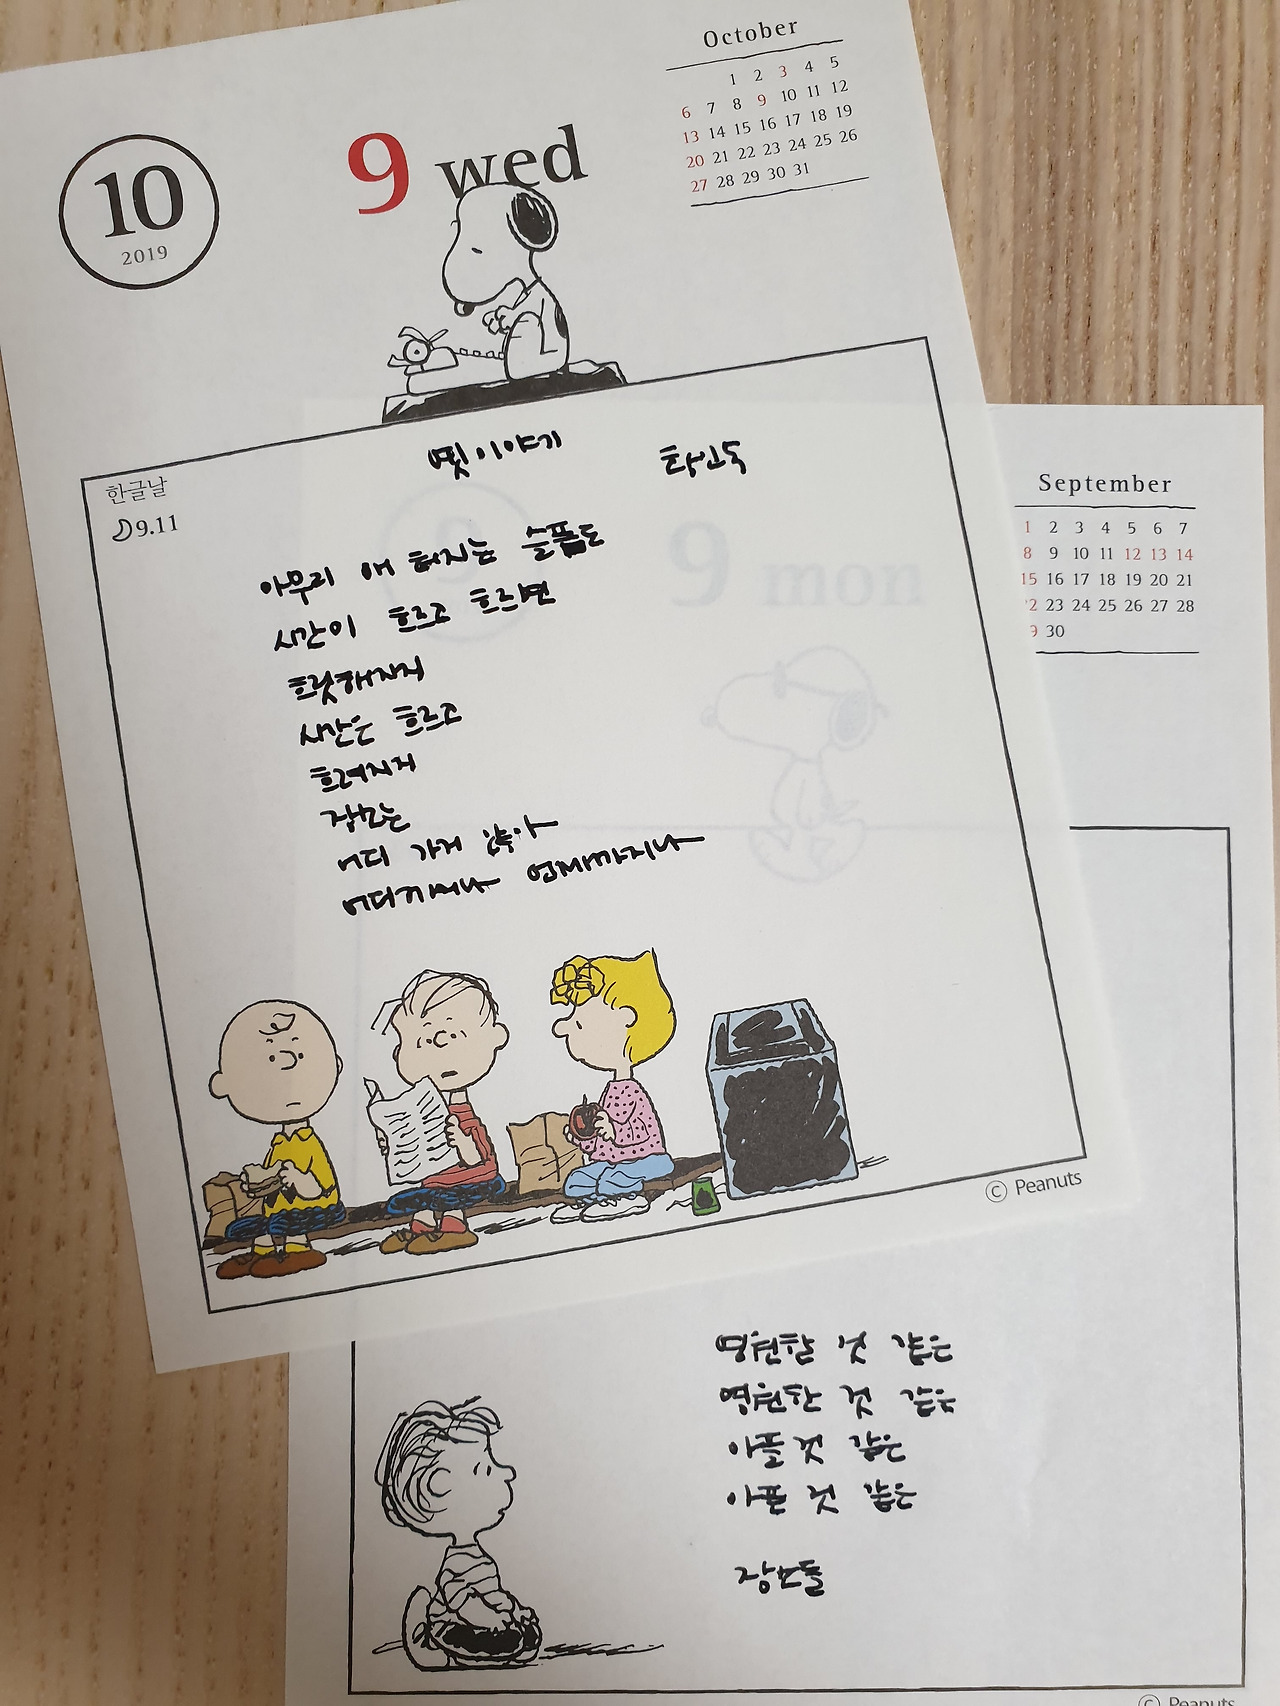 October
1 2 3 4 5
6 7 8 9 10 11 12
13 14 15 16 17 18 19
20 21 22 23 24 25 26
27 28 29 30 31
10
2019
9 wed
한글날
9.11
옛 이야기 최인숙
아무리 애 터지는 슬픔도
시간이 흐르고 흐르면
흐릿해지지
시간은 흐르고
흐려지지
장소는
어디 가지 않아
어디까지나 언제까지나
© Peanuts
September
1 2 3 4 5 6 7
8 9 10 11 12 13 14
15 16 17 18 19 20 21
2 23 24 25 26 27 28
9 30
9 mon
영원할 것 같은
영원한 것 같은
아플 것 같은
아픈 것 같은
장소들
© Peanuts